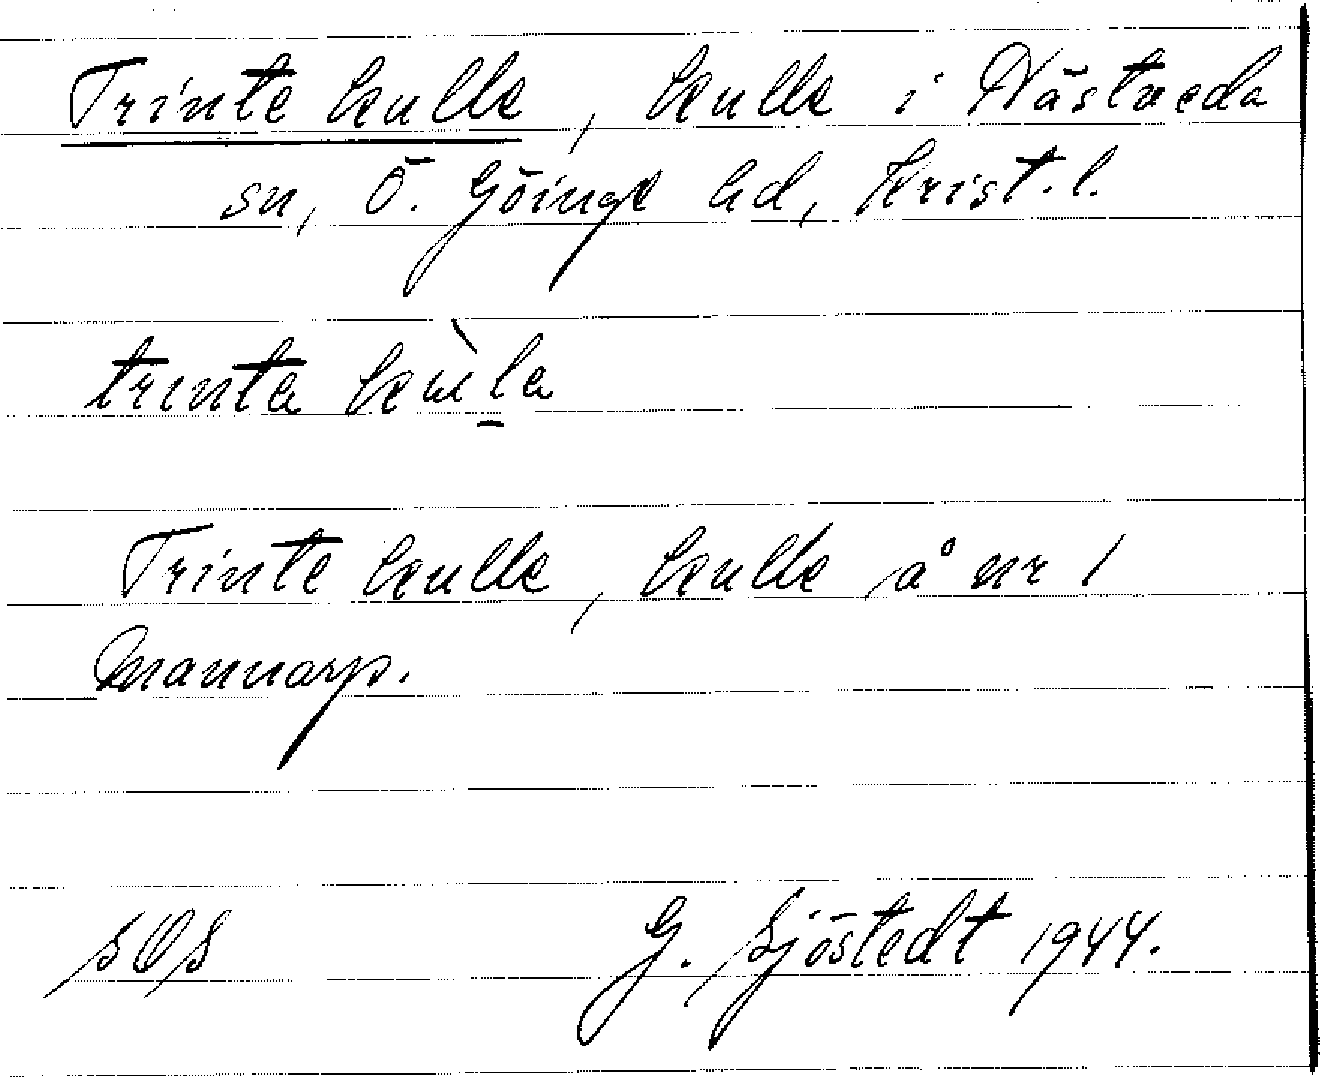 Trinte kulle, kulle i Näsraeda
sn, Ö. Göinge hd, Krist. l.
trinta
Trinte kulle, kulle å nr 1
Mannarp.
SOS G. Sjöstedt 1944.